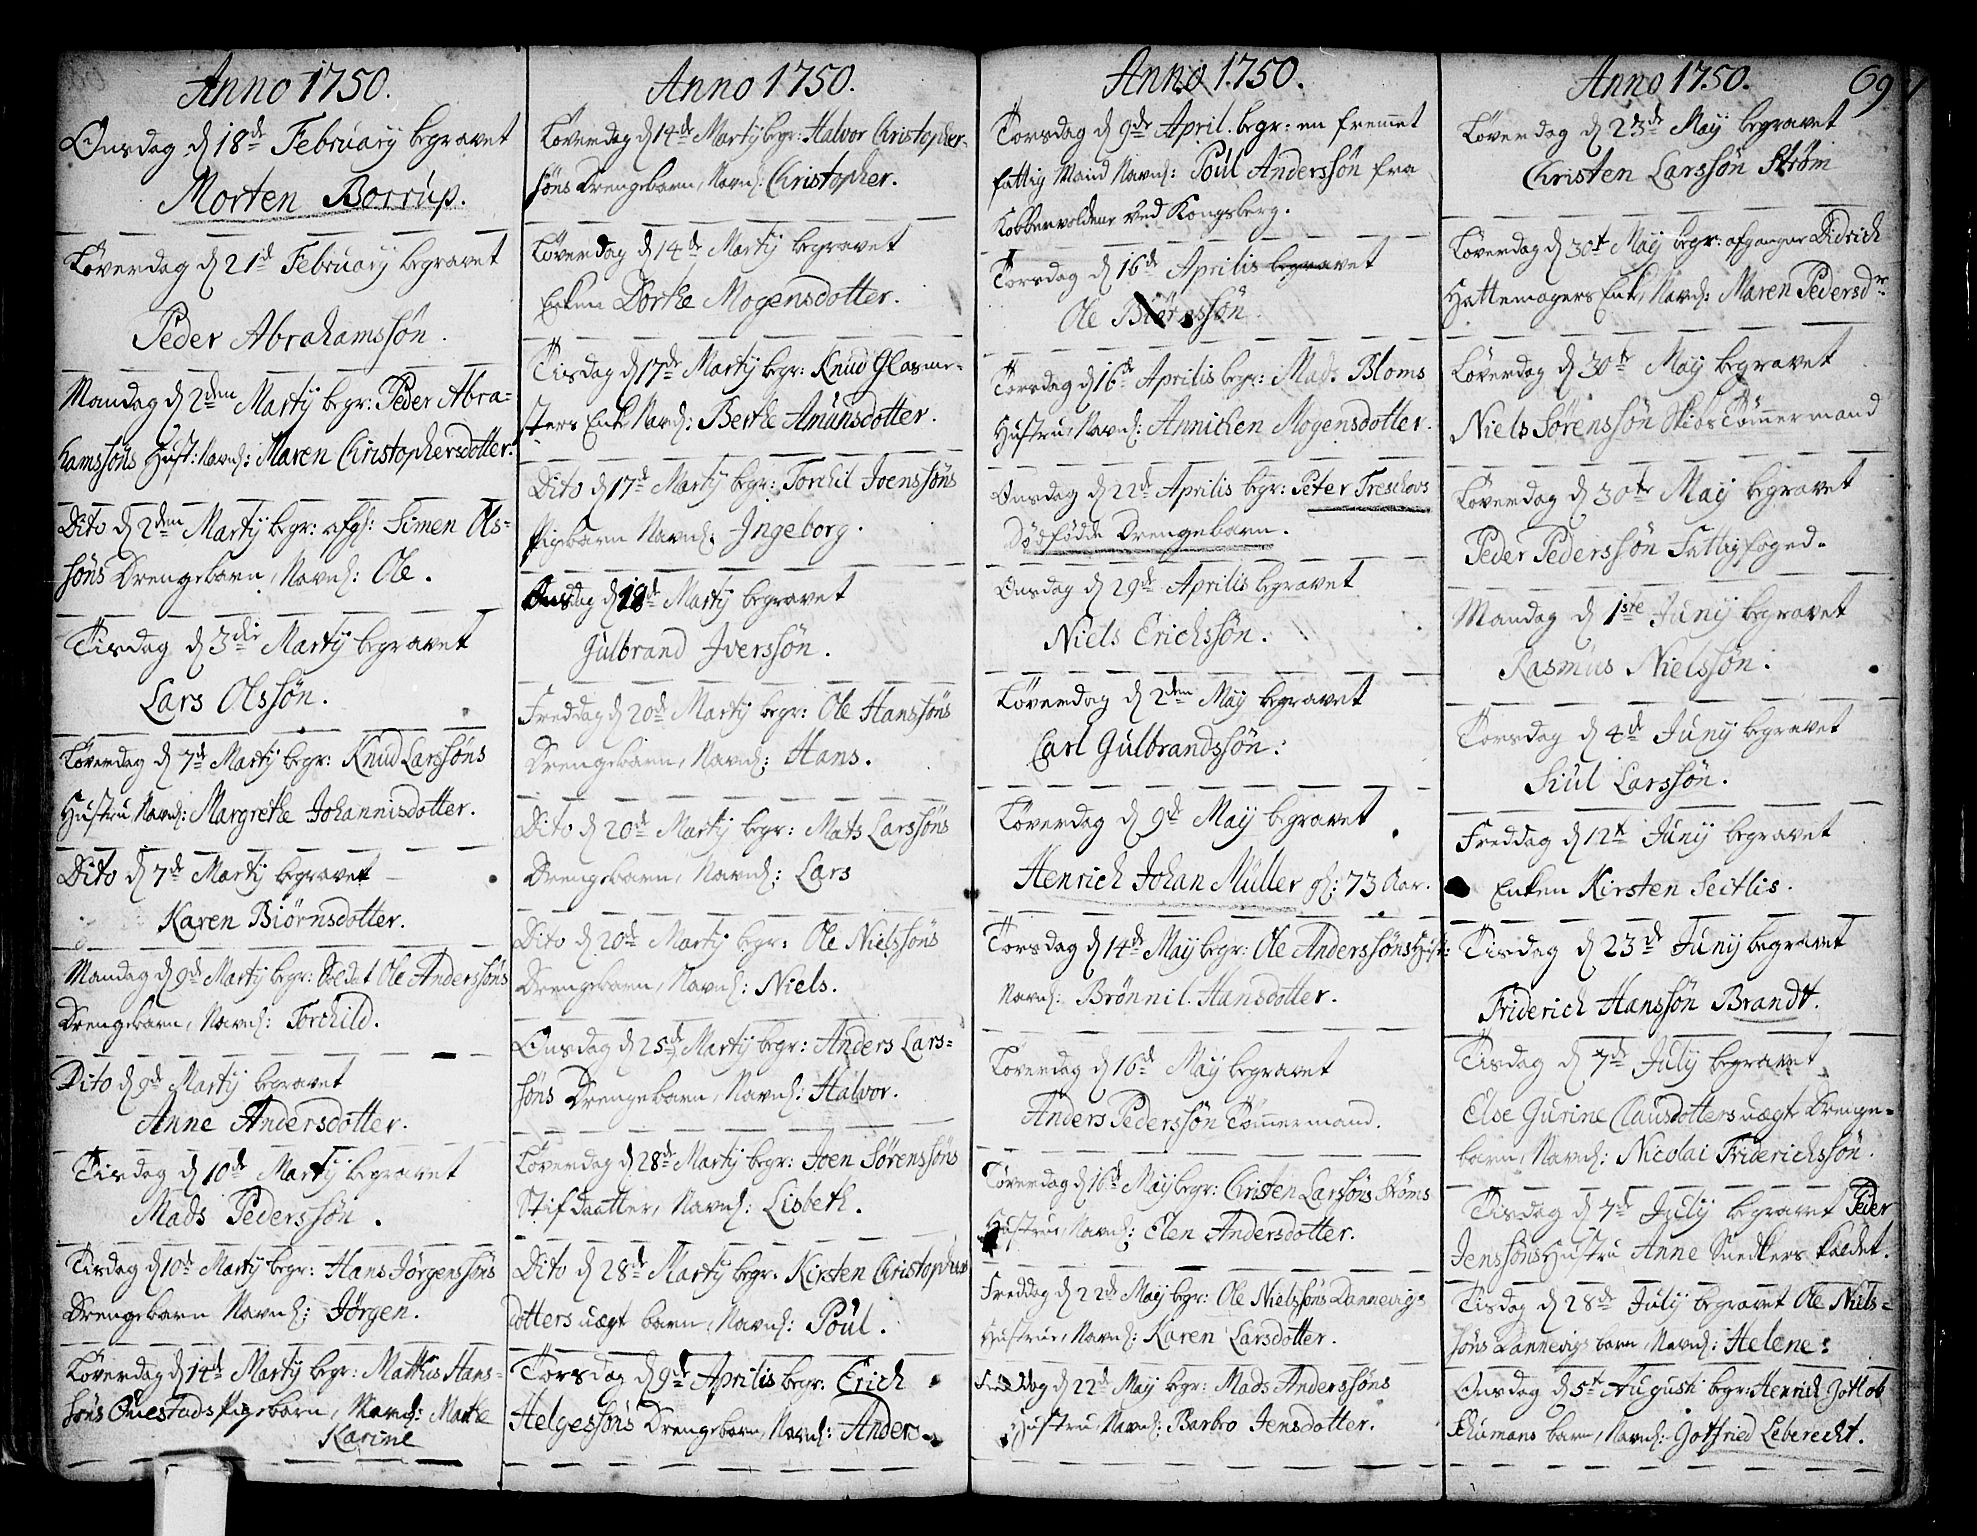 Anno 1750.
Onsdag d 18de February begravet
Morten Borrup.
Løverdag d 21d February begravet
Peder Abrahamssøn.
Mandag d 2den Martij begr: Peder Abra-
hamssøns Hust: Navnl: Maren Christophersdotter.
Dito d 2den Martij begr: afgl: Simen Ols-
søns Drengebarn, Navnl: Ole.
Tisdag d 3die Martij begravet
Lars Olssøn.
Løverdag d 7de Martij begr: Knud Larssøns
Hustru Navnl: Margrethe Johannisdotter.
Dito d 7de Martij begravet
Karen Biørnsdotter.
Mandag d 9d Martij begr: Soldat Ole Anderssøns
Drengebarn, Navnl: Torchild.
Dito d 9d Martij begravet
Anne Andersdotter.
Tisdag d 10de Martij begravet
Mads Pederssøn.
Tisdag d 10de Martij begr: Hans Jørgenssøns
Drengebarn Navnl: Jørgen.
Løverdag d 14d Martij begr: Mathis Hans-
søns Pigebarn, Navnl: Marthe
Karine
Anno 1750.
Løverdag d 14de Martij begr: Halvor Christopher-
søns Drengebarn, Navnl: Christopher.
Løverdag d 14de Martij begravet
Enken Dorthe Mogensdotter.
Tisdag d 17de Martij begr: Knud Glasme-
sters Enke Navnl: Berthe Amunsdotter.
Dito d 17de Martij begr: Torchil Joenssøns
Pigebarn Navnl. Ingeborg.
Onsdag d 18d Martij begravet
Gulbrand Iverssøn.
Freddag d 20d Martij begr: Ole Hanssøns
Drengebarn, Navnl: Hans.
Dito d 20de Martij begr: Mats Larssøns
Drengebarn, Navnl: Lars
Dito d 20de Martij begr: Ole Nielssøns
Drengebarn, Navnl: Niels.
Onsdag d 25de Martij begr: Anders Lars-
søns Drengebarn, Navnl: Halvor.
Løverdag d 28de Martij begr: Joen Sørenssøns
Stifdaatter, Navnl: Lisbeth.
Dito d 28de Martij begr. Kirsten Christopher
dotters uægt barn, Navnl: Poul.
Torsdag d 9de Aprilis begr: Erich
Helgessøns Drengebarn, Navnl: Anders
Anno 1750.
Torsdag d 9de April. begr: en fremmet
fattig Mand Navnl: Poul Anderssøn fra
Kobbervoldene ved Kongsberg.
Torsdag d 16de Aprilis begravet
Ole Biørnssøn
Torsdag d 16de Aprilis begr: Mads Bloms
Hustru, Navnl: Annichen Mogensdotter.
Onsdag d 22de Aprilis begr: Peter Treschovs
Dødfødde Drengebarn.
Onsdag d 29de Aprilis begravet
Niels Erichssøn.
Løverdag d 2den May begravet
Carl Gulbrandssøn:
Løverdag d 9d May begravet
Henrich Johan Müller gl: 73 Aar.
Torsdag d 14de May begr: Ole Anderssøns Hust:
Navnl: Brønnil. Hansdotter.
Løverdag d 16de May begravet
Anders Pederssøn Tømmermand.
Løverdag d 16de May begr: Christen Larssøns Strøms
Hustrue, Navnl: Elen Andersdotter.
Freddag d 22de May begr: Ole Nielssøns Dannevigs
Hustrue, Navnl: Karen Larsdotter.
Freddag d 22de May begr: Mads Anderssøns
Hustru Navnl: Barbro Jensdotter.
Anno 1750.
69
Løverdag d 23de May begravet
Christen Larssøn Strøm
Løverdag d 30te May begr: afgangne Didrich
Hattemagers Enke, Navnl: Maren Pedersdr
Løverdag d 30te May begravet
Niels Sørenssøn Skibstømmermand
Løverdag d 30te May begravet
Peder Pederssøn Fattigfoged.
Mandag d 1ste Juny begravet
Rasmus Nielssøn.
Torsdag d 4de Juny begravet
Siul Larssøn.
Freddag d 12te Juny begravet
Enken Kirsten Seitlis.
Tisdag d 23de Juny begravet
Friderich Hanssøn Brandt.
Tisdag d 7de July begravet
Else Gurine Clausdotters uægt Drenge-
barn, Navnl: Nicolai Friderichssøn.
Tisdag d 7de July begravet Peder
Jenssøns Hustru Anne Snedkers kaldet.
Tisdag d 28de July begravet Ole Niels-
søns Dannevigs barn, Navnl: Helene:
Onsdag d 5te Augusti begr: Henrich Gotlob
Schumans barn, Navnl: Gotfried Leberecht.